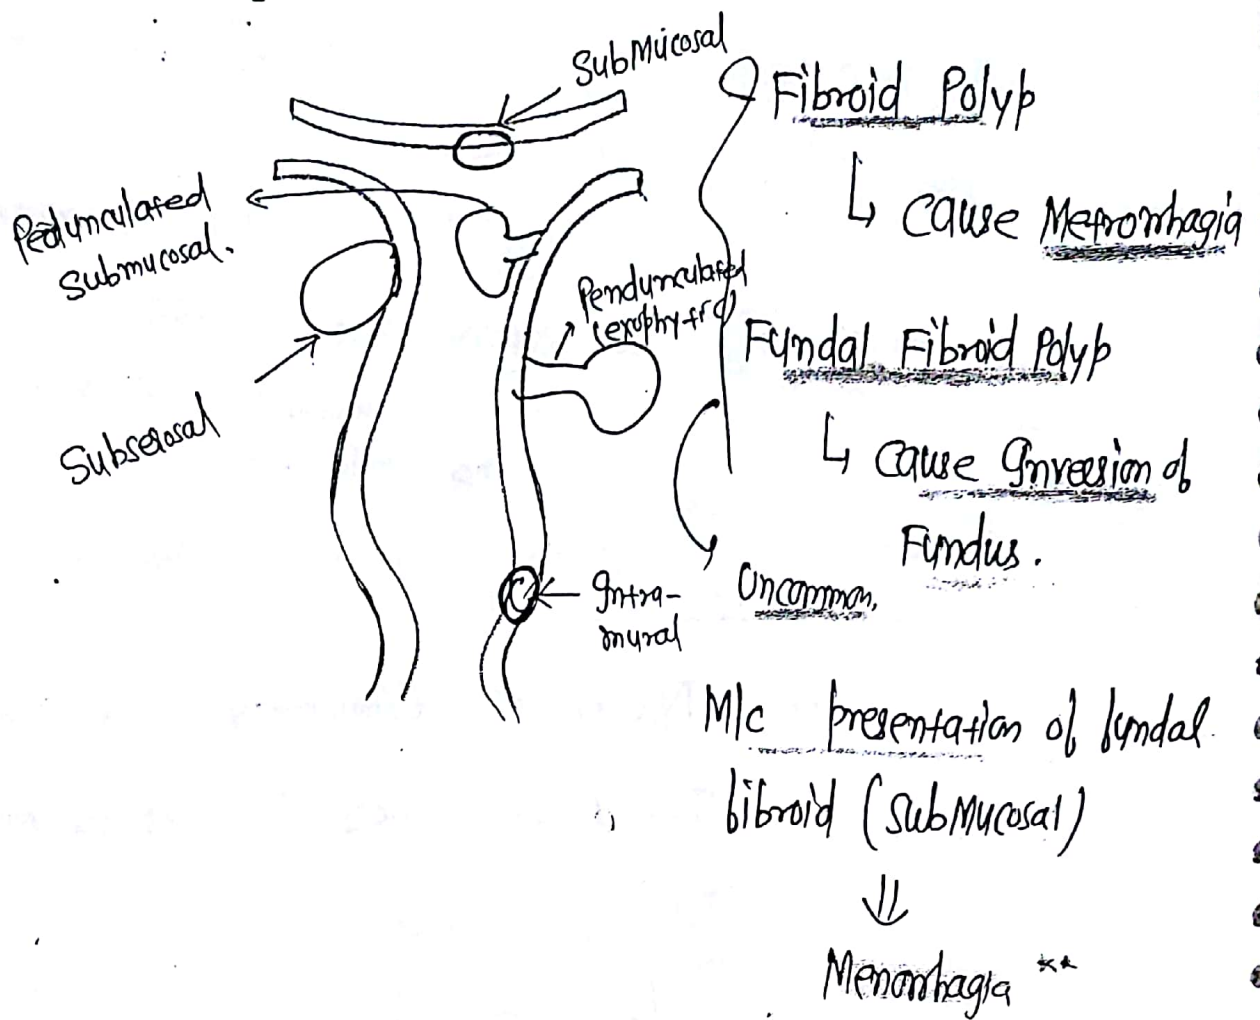 SubMucosal
Pedunculated
submucosal.
Pendunculated
(exophytic)
Subserosal
Intra-
mural
Fibroid Polyp
↳ cause Metrorrhagia
Fundal Fibroid Polyp
↳ cause Inversion of
Fundus.
Uncommon.
M/c presentation of fundal
fibroid (SubMucosal)
⇓
Menorrhagia **